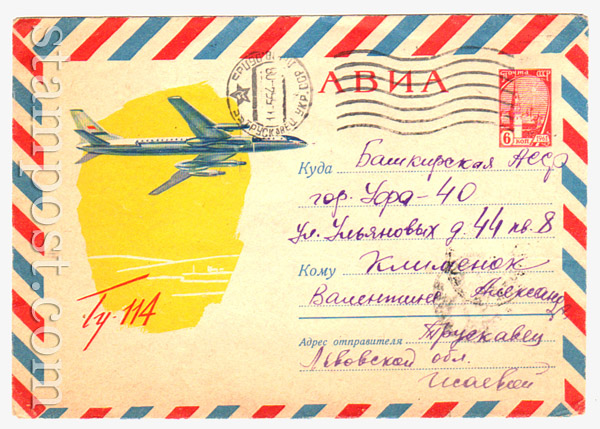 stampost.com
АВИА
ПОЧТА СССР
6 КОП
Куда Башкирская АССР
гор. Уфа-40
ул. Ульяновых д. 44 кв. 8
Кому Клименок
Валентине Александ
Адрес отправителя Трускавец
Львовской обл.
Исаевой
Ту-114
ТРУСКАВЕЦ УКР. ССР